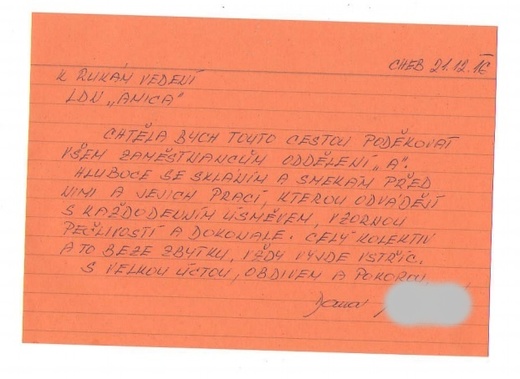 CHEB 21.12.16
K RUKÁM VEDENÍ
LDN „AMICA"
CHTĚLA BYCH TOUTO CESTOU PODĚKOVAT
VŠEM ZAMĚSTNANCŮM ODDĚLENÍ „A".
HLUBOCE SE SKLÁNÍM A SMEKÁM PŘED
NIMI A JEJICH PRACÍ, KTEROU ODVÁDĚJÍ
S KAŽDODENNÍM ÚSMĚVEM, VZORNOU
PEČLIVOSTÍ A DOKONALE. CELÝ KOLEKTIV
A TO BEZE ZBYTKU, VŽDY VYJDE VSTŘÍC.
S VELKOU ÚCTOU, OBDIVEM A POKOROU